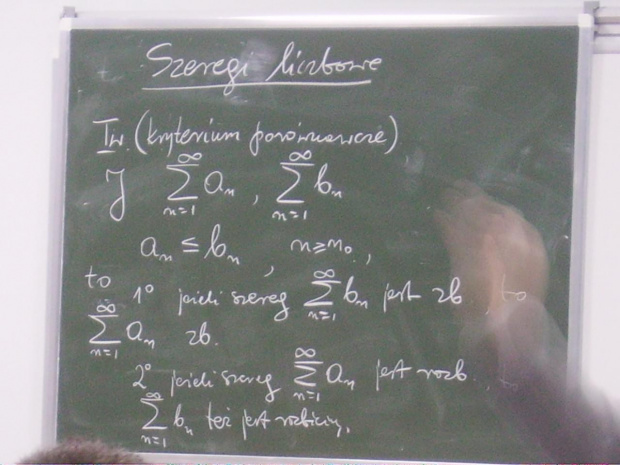 Szeregi liczbowe
Tw. (kryterium porównawcze)
J ∑_{n=1}^{∞} a_n , ∑_{n=1}^{∞} b_n
a_n ≤ b_n , n ≥ n_0 ,
to
1° jeżeli szereg ∑_{n=1}^{∞} b_n jest zb , to
∑_{n=1}^{∞} a_n zb.
2° jeżeli szereg ∑_{n=1}^{∞} a_n jest rozb.,
∑_{n=1}^{∞} b_n też jest rozbieżny.